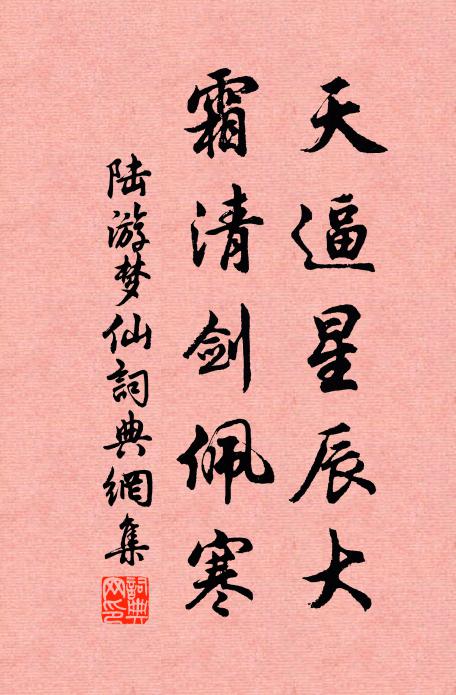 天逼星辰大
霜清剑佩寒
陆游梦仙詞典網集
詞典网印